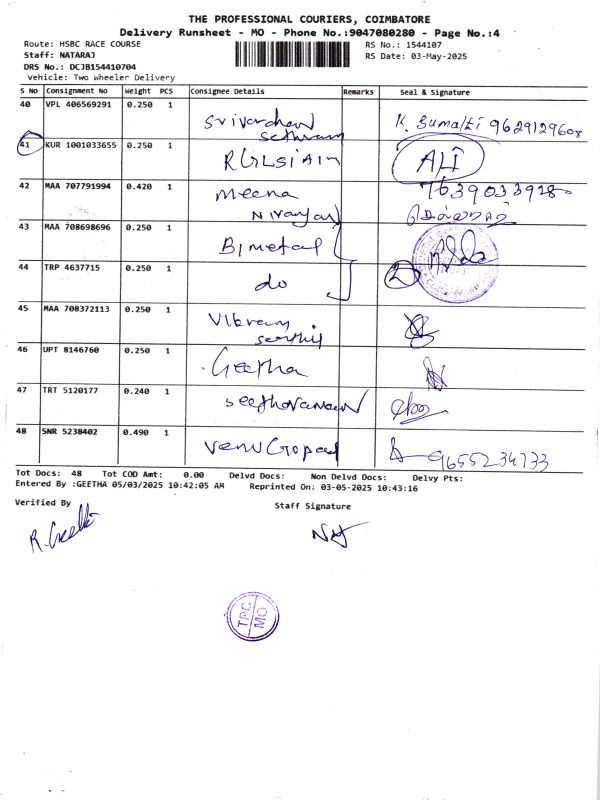 THE PROFESSIONAL COURIERS, COIMBATORE
Delivery Runsheet - MO - Phone No.:9047080280 - Page No.:4
Route: HSBC RACE COURSE
RS No.: 1544107
Staff: NATARAJ
RS Date: 03-May-2025
DRS No.: DCJB154410704
Vehicle: Two Wheeler Delivery
S No Consignment No Weight PCS Consignee Details Remarks Seal & Signature
40 VPL 406569291 0.250 1 Srivardhan K. Sumathi 9629129608
41 KUR 1001033655 0.250 1 ALI
42 MAA 707791994 0.420 1 Meena 7639033928
Niranjan
43 MAA 708698696 0.250 1 Bimetal
44 TRP 4637715 0.250 1 do 2
45 MAA 708372113 0.250 1 Vikram
46 UPT 8146760 0.250 1 Geetha
47 TRT 5120177 0.240 1 Seetharaman
48 SNR 5238402 0.490 1 Venu Gopal 9655234733
Tot Docs: 48 Tot COD Amt: 0.00 Delvd Docs: Non Delvd Docs: Delvy Pts:
Entered By :GEETHA 05/03/2025 10:42:05 AM Reprinted On: 03-05-2025 10:43:16
Verified By
Staff Signature
R. Geetha
TPC
MO